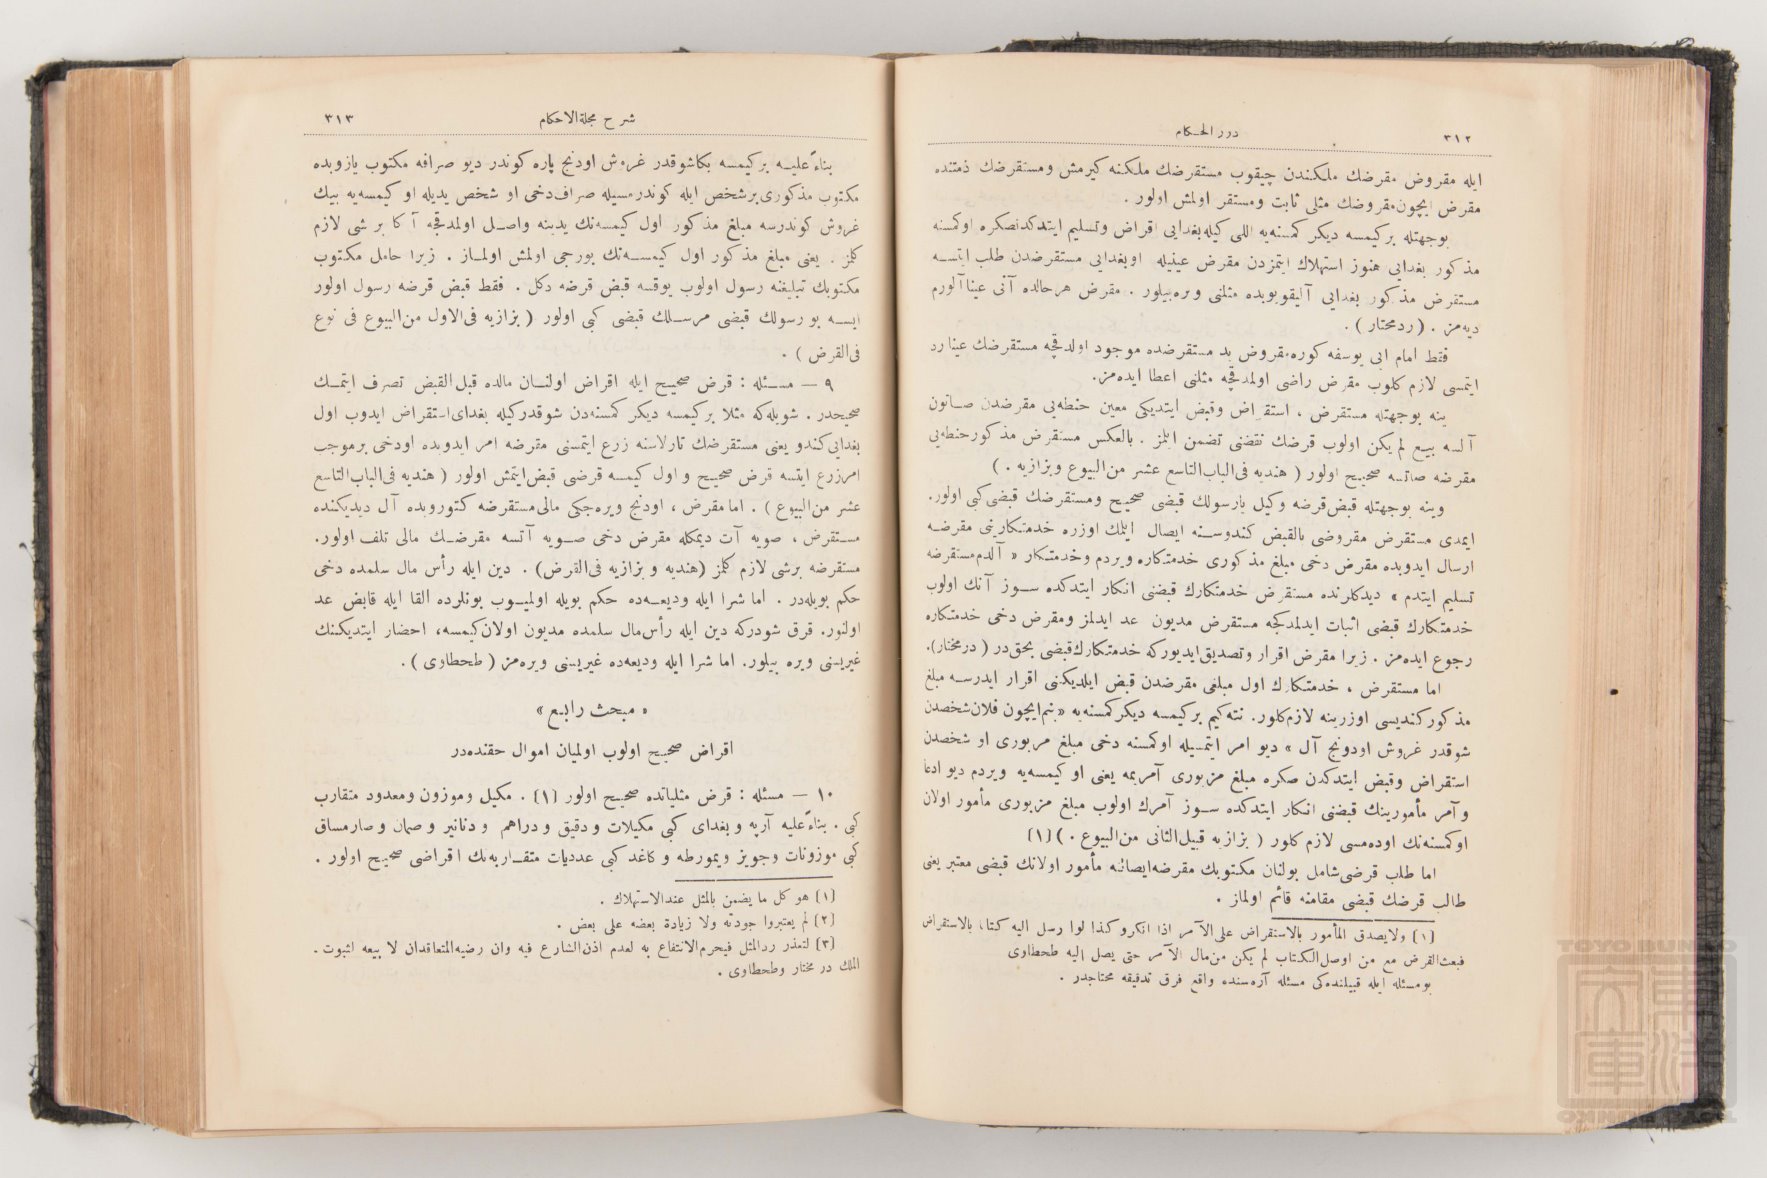 ٣١٢
درر الحكام
ايله مقروض مقرضك ملكندن چيقوب مستقرضك ملكنه كيرمش ومستقرضك ذمتنده
مقرض ايچون مقروضك مثلى ثابت ومستقر اولمش اولور .
بوجهتله بر كيمسه ديكر كمسنه‌يه اللى كيله بغدايى اقراض وتسليم ايتدكدنصكره اوكمسنه
مذكور بغدايى هنوز استهلاك ايتمزدن مقرض عينيله اوبغدايى مستقرضدن طلب ايتسه
مستقرض مذكور بغدايى آليقويوبده مثلنى ويره‌بيلور . مقرض هرحالده آنى عينا آلورم
ديه‌مز . ( ردمختار ) .
فقط امام ابى يوسفه كوره مقروض يد مستقرضده موجود اولدقچه مستقرضك عينا رد
ايتمسى لازم كلوب مقرض راضى اولمدقچه مثلنى اعطا ايده‌مز.
ينه بوجهتله مستقرض ، استقراض وقبض ايتديكى معين حنطه‌يى مقرضدن صاتون
آلسه بيع لم يكن اولوب قرضك نقضنى تضمن ايلمز . بالعكس مستقرض مذكور حنطه‌يى
مقرضه صاتسه صحيح اولور ( هنديه فى الباب التاسع عشر من البيوع وبزازيه . )
وينه بوجهتله قبض قرضه وكيل يا رسولك قبضى صحيح ومستقرضك قبضى كبى اولور.
ايمدى مستقرض مقروضى بالقبض كندوسنه ايصال ايلمك اوزره خدمتكارينى مقرضه
ارسال ايدوبده مقرض دخى مبلغ مذكورى خدمتكاره ويردم وخدمتكار « آلدم مستقرضه
تسليم ايتدم » ديدكلرنده مستقرض خدمتكارك قبضنى انكار ايتدكده سوز آنك اولوب
خدمتكارك قبضى اثبات ايدلمدكجه مستقرض مديون عد ايدلمز ومقرض دخى خدمتكاره
رجوع ايده‌مز . زيرا مقرض اقرار وتصديق ايديوركه خدمتكارك قبضى بحق در ( درمختار).
اما مستقرض ، خدمتكارك اول مبلغى مقرضدن قبض ايلديكنى اقرار ايدرسه مبلغ
مذكور كنديسى اوزرينه لازم كلور. نته‌كيم بر كيمسه ديكر كمسنه‌يه « بنم ايچون فلان شخصدن
شوقدر غروش اودونج آل » ديو امر ايتمسيله اوكمسنه دخى مبلغ مزبورى او شخصدن
استقراض وقبض ايتدكدن صكره مبلغ مزبورى آمريمه يعنى او كيمسه‌يه ويردم ديو ادعا
وآمر مأمورينك قبضنى انكار ايتدكده سوز آمرك اولوب مبلغ مزبورى مأمور اولان
اوكمسنه‌نك اوده‌مسى لازم كلور ( بزازيه قبيل الثانى من البيوع . ) [١]
اما طلب قرضى شامل بولنان مكتوبك مقرضه ايصالنه مأمور اولانك قبضى معتبر يعنى
طالب قرضك قبضى مقامنه قائم اولماز .
[١] ولايصدق المأمور بالاستقراض على الآمر اذا انكر وكذا لوا رسل اليه كتابا بالاستقراض
فبعث القرض مع من اوصل الكتاب لم يكن من مال الآمر حتى يصل اليه طحطاوى
بومسئله ايله قبيلنده‌كى مسئله آره‌سنده واقع فرق تدقيقه محتاجدر .
شرح مجلة الاحكام
٣١٣
بناءً عليه بر كيمسه بكا شوقدر غروش اودنج پاره كوندر ديو صرافه مكتوب يازوبده
مكتوب مذكورى بر شخص ايله كوندرمسيله صراف دخى او شخص يديله او كيمسه‌يه بيك
غروش كوندرسه مبلغ مذكور اول كيمسه‌نك يدينه واصل اولمدقجه آكا بر شى لازم
كلمز . يعنى مبلغ مذكور اول كيمسه‌نك بورجى اولمش اولماز . زيرا حامل مكتوب
مكتوبك تبليغنه رسول اولوب يوقسه قبض قرضه دكل . فقط قبض قرضه رسول اولور
ايسه بو رسولك قبضى مرسلك قبضى كبى اولور ( بزازيه فى الاول من البيوع فى نوع
فى القرض ) .
٩ — مسئله : قرض صحيح ايله اقراض اولنان مالده قبل القبض تصرف ايتمك
صحيحدر . شويله‌كه مثلا بر كيمسه ديكر كمسنه‌دن شوقدر كيله بغداى استقراض ايدوب اول
بغدايى كندو يعنى مستقرضك تارلاسنه زرع ايتمسنى مقرضه امر ايدوبده اودخى برموجب
امر زرع ايتسه قرض صحيح و اول كيمسه قرضى قبض ايتمش اولور ( هنديه فى الباب التاسع
عشر من البيوع ) . اما مقرض ، اودنج ويره‌جكى مالى مستقرضه كتوروبده آل ديديكنده
مستقرض ، صويه آت ديمكله مقرض دخى صويه آتسه مقرضك مالى تلف اولور.
مستقرضه برشى لازم كلمز (هنديه و بزازيه فى القرض) . دين ايله رأس مال سلمده دخى
حكم بويله‌در . اما شرا ايله وديعه‌ده حكم بويله اولميوب بونلرده القا ايله قابض عد
اولنور. فرق شودركه دين ايله رأس مال سلمده مديون اولان كيمسه، احضار ايتديكنك
غيريسنى ويره بيلور. اما شرا ايله وديعه‌ده غيريسنى ويره‌مز ( طحطاوى ) .
« مبحث رابع »
اقراض صحيح اولوب اولميان اموال حقنده‌در
١٠ — مسئله : قرض مثلياتده صحيح اولور [١] . مكيل وموزون ومعدود متقارب
كبى . بناءً عليه آرپه و بغداى كبى مكيلات و دقيق و دراهم و دنانير و صمان و صارمساق
كبى موزونات وجويز ويمورطه و كاغد كبى عدديات متقاربه‌نك اقراضى صحيح اولور .
[١] هو كل ما يضمن بالمثل عند الاستهلاك .
[٢] لم يعتبروا جودته ولا زيادة بعضه على بعض .
[٣] لتعذر رد المثل فيحرم الانتفاع به لعدم اذن الشارع فيه وان رضيه المتعاقدان لا بيعه لثبوت .
الملك در مختار وطحطاوى .
TOYO BUNKO